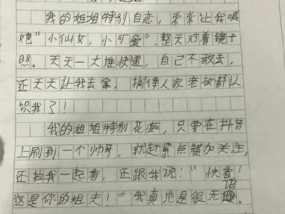 我的姐姐特别自恋，要求让我喊
她"小仙女，小可爱"，整天对着镜子
照。天天一大堆快递，自己不敢去，
还天天让我去拿，搞得人家老板都认
识我了！
我的姐姐特别花痴，只要在抖音
上刷到一个帅哥，就赶紧点赞加关注，
还拉我一起看，还跟我说："快看！
这是你的姐夫！"我真地是很无语。